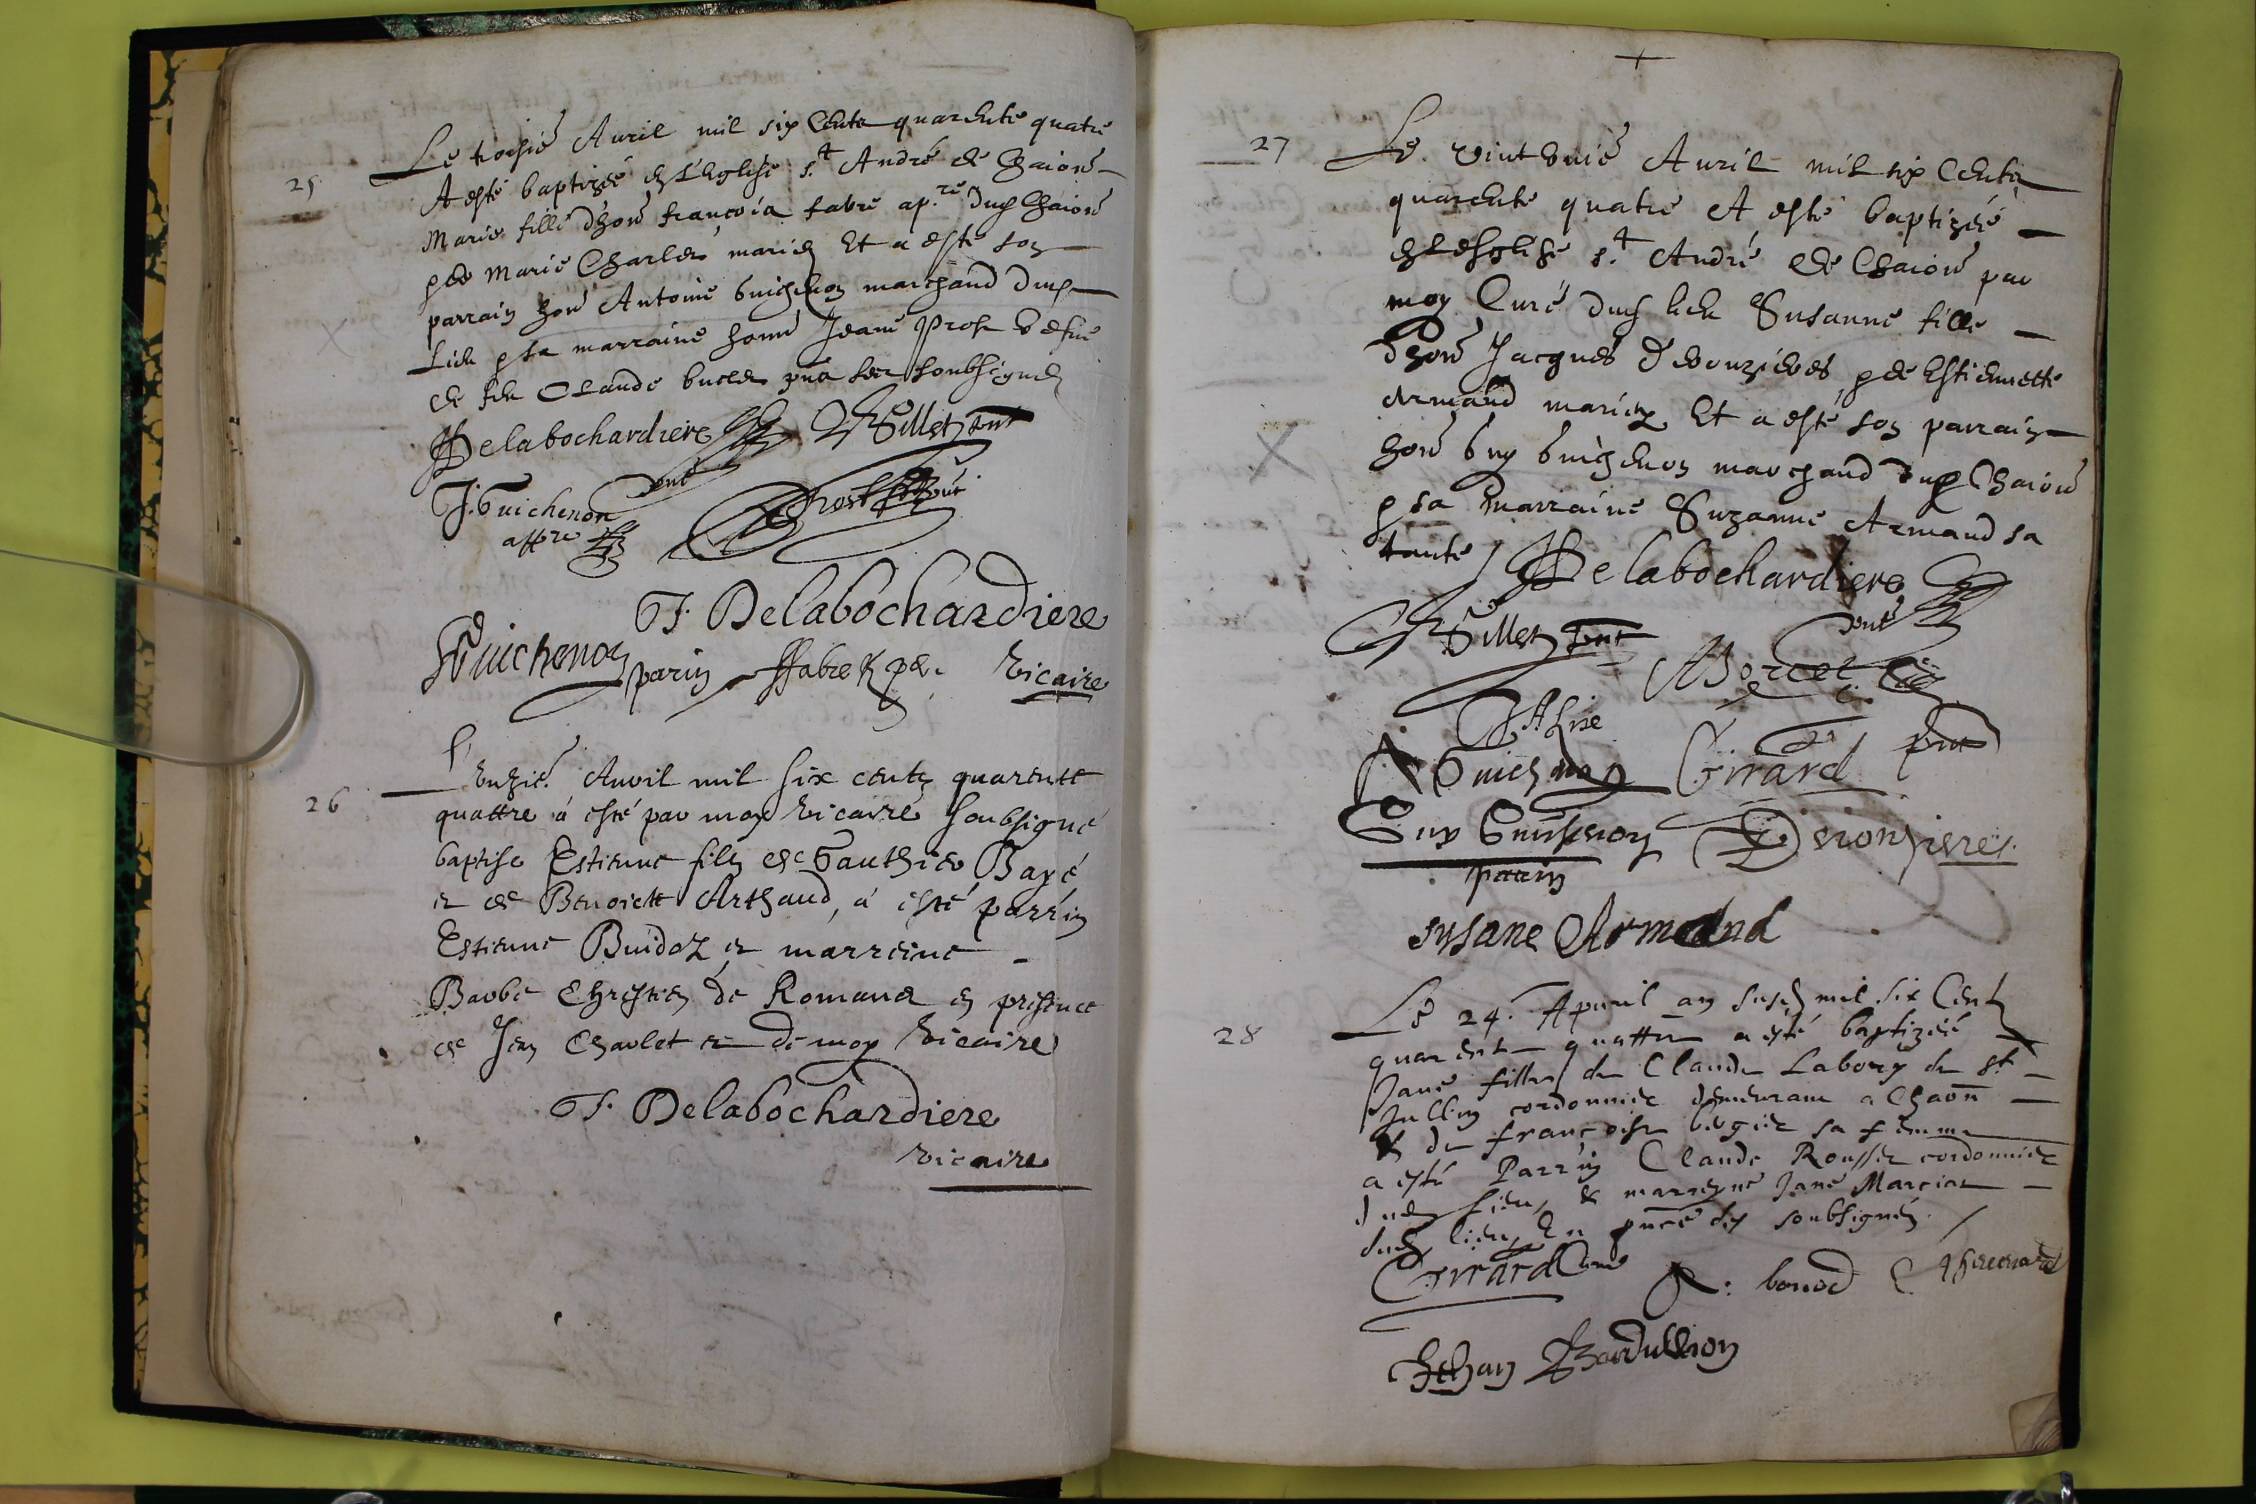 25
Le troisie Auril mil six Cents quarente quatre
A esté baptizée en L'Eglise s.t André de Chaion
Marie fille d'hon françois fabre ap.re dud Chaion
Marie Charles mariez Et a esté son
parrain hon Antoine Guichenon marchand dud
Lieu sa marraine hon Jeane Prost vefue
de feu Claude soubsignez
Delabochardiere Gillet pnt
J. Guichenon pnt Prost
appre
T. Delabochardiere
Guichenon parin ffabre pere vicaire
26
L'unzie. Auril mil six cents quarente
quattre à esté par moy vicaire soubsigné
baptise Estienne filz de Gauthier Bayé
et de Benoiette Arthaud, à esté parrin
Estienne Buidoz et marreine
Barbe Chrestien de Romans en presence
de Jean Charlet et de moy vicaire
T. Delabochardiere
vicaire
27
Le vint unie Auril mil six Cents
quarente quatre A esté baptizée
en L'esglise s.t André de Chaion par
moy Curé dud lieu Susanne fille
d'hon Jacques Desvouzieres Estiennette
Armand mariez Et a esté son parrain
hon Guy Guichenon marchand dud Chaion
sa marraine Suzanne Armand sa
tante Delabochardiere
Gillet pnt pnt
Guichenon Girard pnt
Guy Guichenon
parrin
susane Armand
28
Le 24. Apuril an susd mil six Cent
quarent quattre a esté baptizéé
Jane fille de Claude Labory de St
Jullin cordonnier demeurant a Chaon
& de françoise sa femme
a esté Parrin Claude Rousset cordonnier
dud lieu, & marreyne Jane Marcian
dud lieu, En pnce des soubsignéz
Girard Cure bonod
Jehan Bardullion